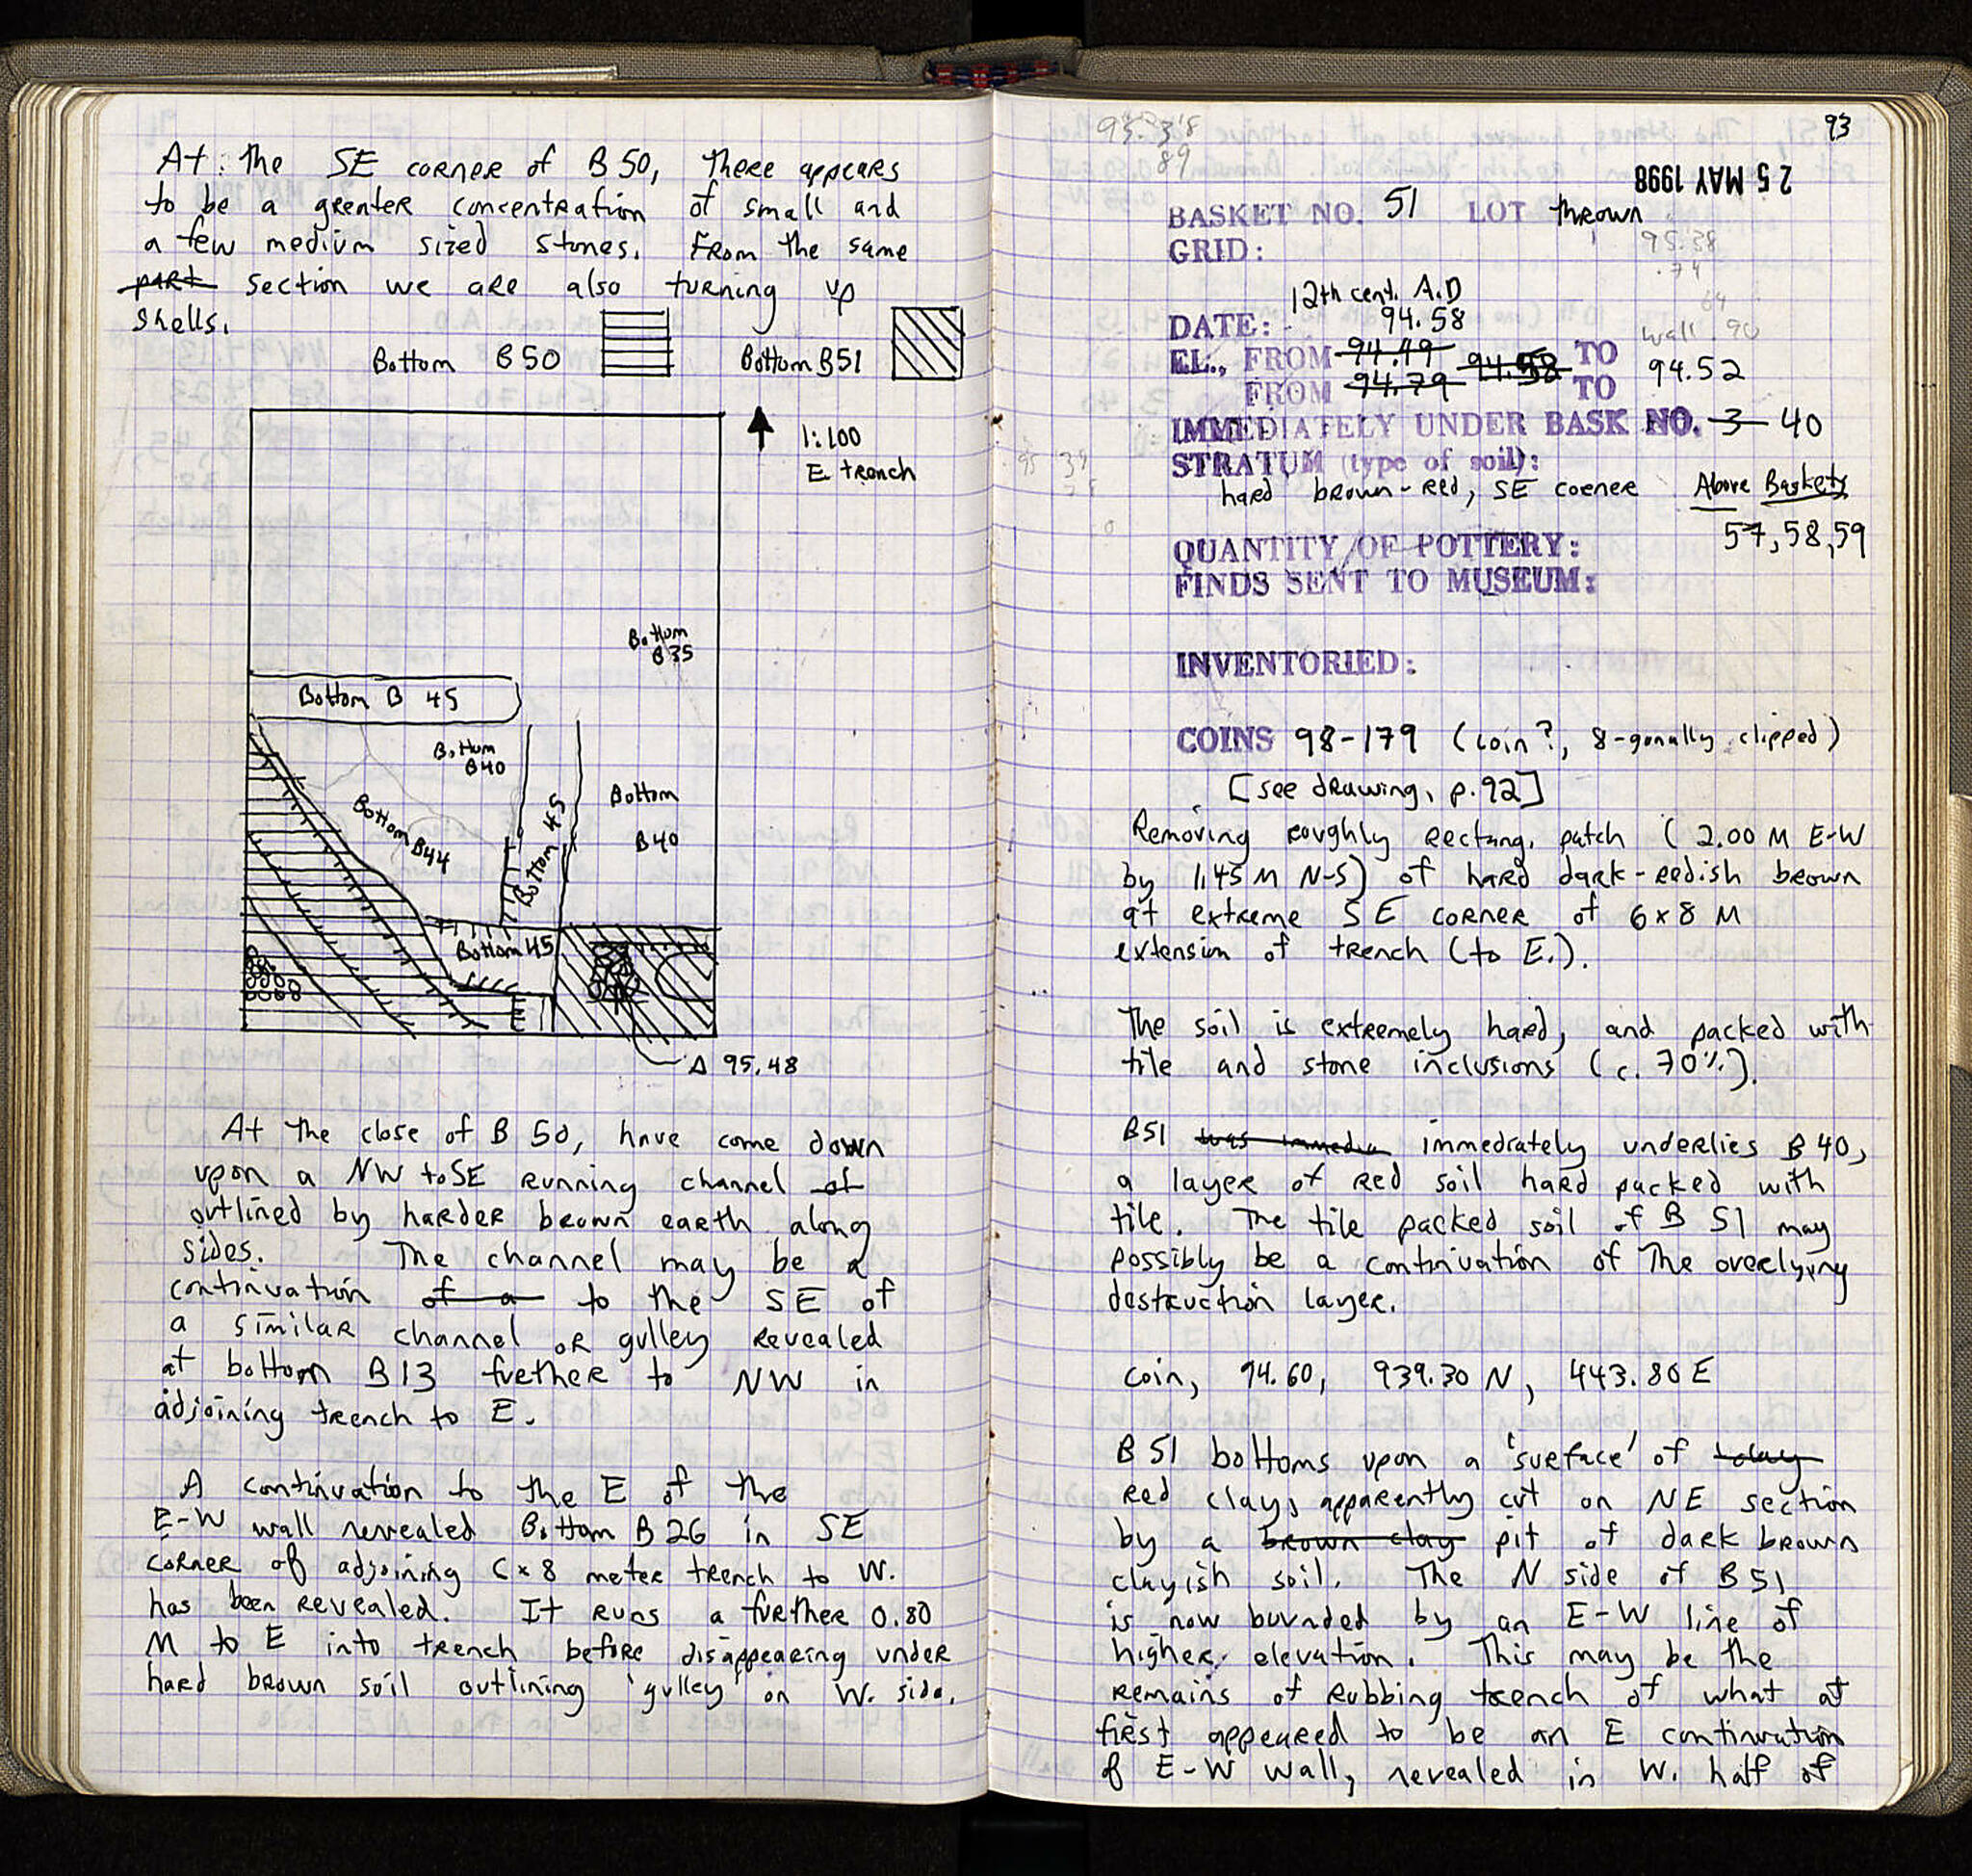 At the SE corner of B 50, there appears
to be a greater concentration of small and
a few medium sized stones. From the same
part section we are also turning up
shells.
Bottom B50
Bottom B51
1:100
E trench
Bottom
B35
Bottom B 45
Bottom
B40
Bottom B44
Bottom 45
Bottom
B40
Bottom 45
Δ 95.48
At the close of B 50, have come down
upon a NW to SE running channel of
outlined by harder brown earth along
sides. The channel may be a
continuation of a to the SE of
a similar channel or gulley revealed
at bottom B13 further to NW in
adjoining trench to E.
A continuation to the E of the
E-W wall revealed Bottom B26 in SE
corner of adjoining 6x8 meter trench to W.
has been revealed. It runs a further 0.80
M to E into trench before disappearing under
hard brown soil outlining 'gulley' on W. side.
93
95.38
89
25 MAY 1998
BASKET NO. 51 LOT thrown
GRID:
95.38
.74
64
wall .90
12th cent. A.D
DATE: 94.58
EL., FROM 94.49 94.58 TO 94.52
FROM 94.79 TO
IMMEDIATELY UNDER BASK NO. 3 40
STRATUM (type of soil):
hard brown-red, SE corner
Above Baskets
57, 58, 59
QUANTITY OF POTTERY:
FINDS SENT TO MUSEUM:
INVENTORIED:
COINS 98-179 (coin?, 8-gonally clipped)
[see drawing, p.92]
Removing roughly rectang. patch (2.00 M E-W
by 1.45 M N-S) of hard dark-redish brown
at extreme SE corner of 6x8 M
extension of trench (to E.).
The soil is extremely hard, and packed with
tile and stone inclusions (c. 70%).
B51 was immedia immediately underlies B40,
a layer of red soil hard packed with
tile. The tile packed soil of B 51 may
possibly be a continuation of the overlying
destruction layer.
coin, 94.60, 939.30 N, 443.80 E
B 51 bottoms upon a 'surface' of clay
red clay, apparently cut on NE section
by a brown clay pit of dark brown
clayish soil. The N side of B51
is now bounded by an E-W line of
higher elevation. This may be the
remains of robbing trench of what at
first appeared to be an E continuation
of E-W wall, revealed in W. half of